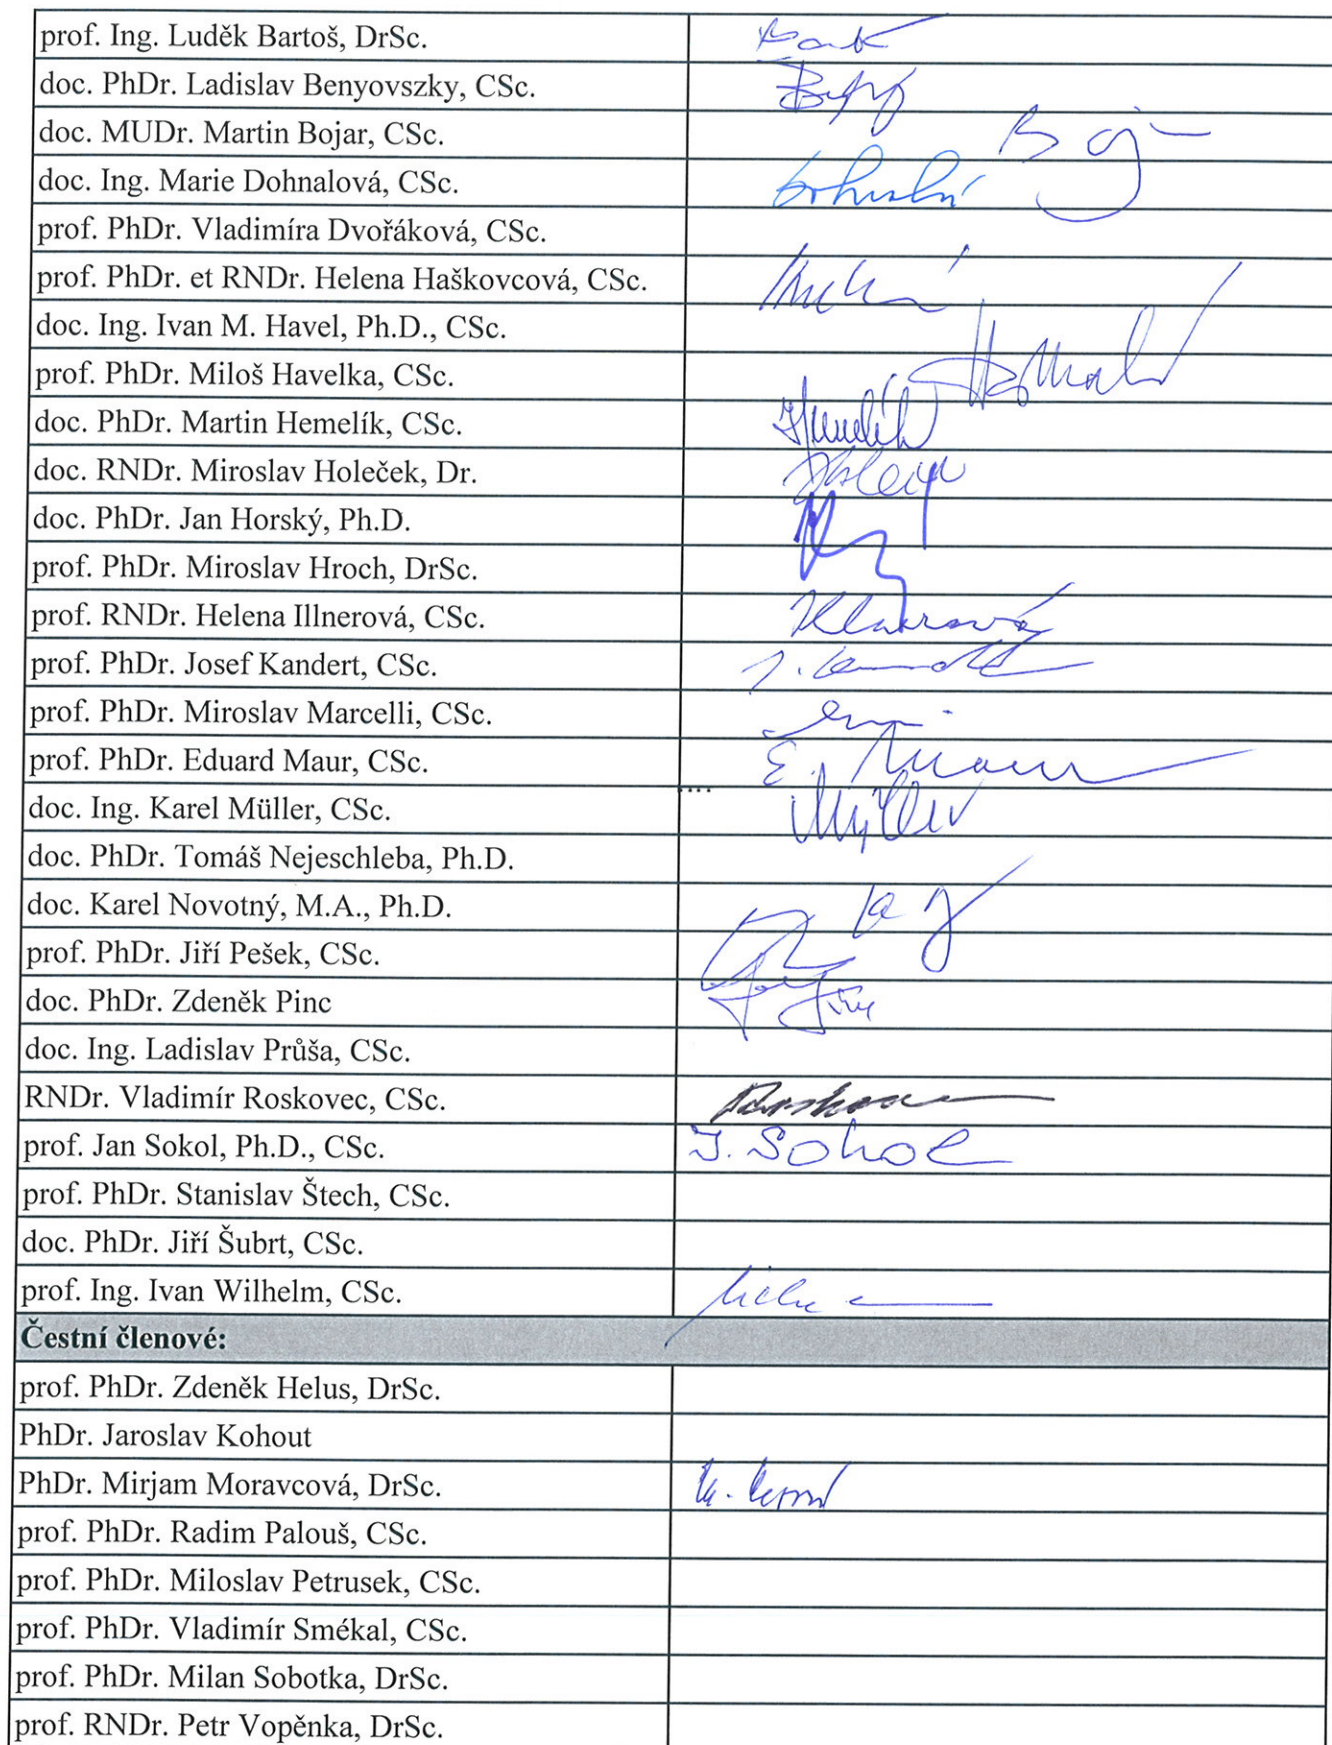 prof. Ing. Luděk Bartoš, DrSc.
doc. PhDr. Ladislav Benyovszky, CSc.
doc. MUDr. Martin Bojar, CSc.
doc. Ing. Marie Dohnalová, CSc.
prof. PhDr. Vladimíra Dvořáková, CSc.
prof. PhDr. et RNDr. Helena Haškovcová, CSc.
doc. Ing. Ivan M. Havel, Ph.D., CSc.
prof. PhDr. Miloš Havelka, CSc.
doc. PhDr. Martin Hemelík, CSc.
doc. RNDr. Miroslav Holeček, Dr.
doc. PhDr. Jan Horský, Ph.D.
prof. PhDr. Miroslav Hroch, DrSc.
prof. RNDr. Helena Illnerová, CSc.
prof. PhDr. Josef Kandert, CSc.
prof. PhDr. Miroslav Marcelli, CSc.
prof. PhDr. Eduard Maur, CSc.
doc. Ing. Karel Müller, CSc. Müller
doc. PhDr. Tomáš Nejeschleba, Ph.D.
doc. Karel Novotný, M.A., Ph.D.
prof. PhDr. Jiří Pešek, CSc.
doc. PhDr. Zdeněk Pinc
doc. Ing. Ladislav Průša, CSc.
RNDr. Vladimír Roskovec, CSc.
prof. Jan Sokol, Ph.D., CSc. J. Sokol
prof. PhDr. Stanislav Štech, CSc.
doc. PhDr. Jiří Šubrt, CSc.
prof. Ing. Ivan Wilhelm, CSc.
Čestní členové:
prof. PhDr. Zdeněk Helus, DrSc.
PhDr. Jaroslav Kohout
PhDr. Mirjam Moravcová, DrSc.
prof. PhDr. Radim Palouš, CSc.
prof. PhDr. Miloslav Petrusek, CSc.
prof. PhDr. Vladimír Smékal, CSc.
prof. PhDr. Milan Sobotka, DrSc.
prof. RNDr. Petr Vopěnka, DrSc.